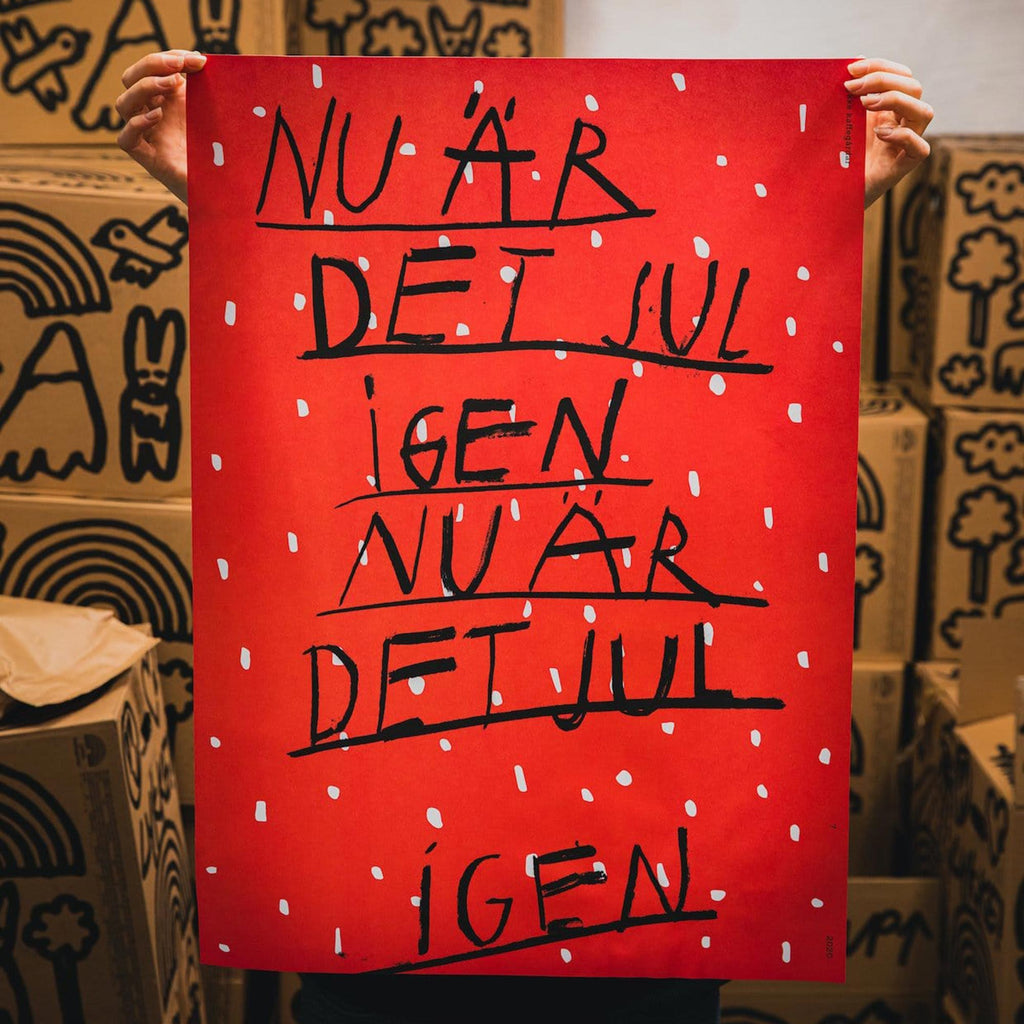 NU ÄR
DET JUL
iGEN
NU ÄR
DET JUL
iGEN
2020